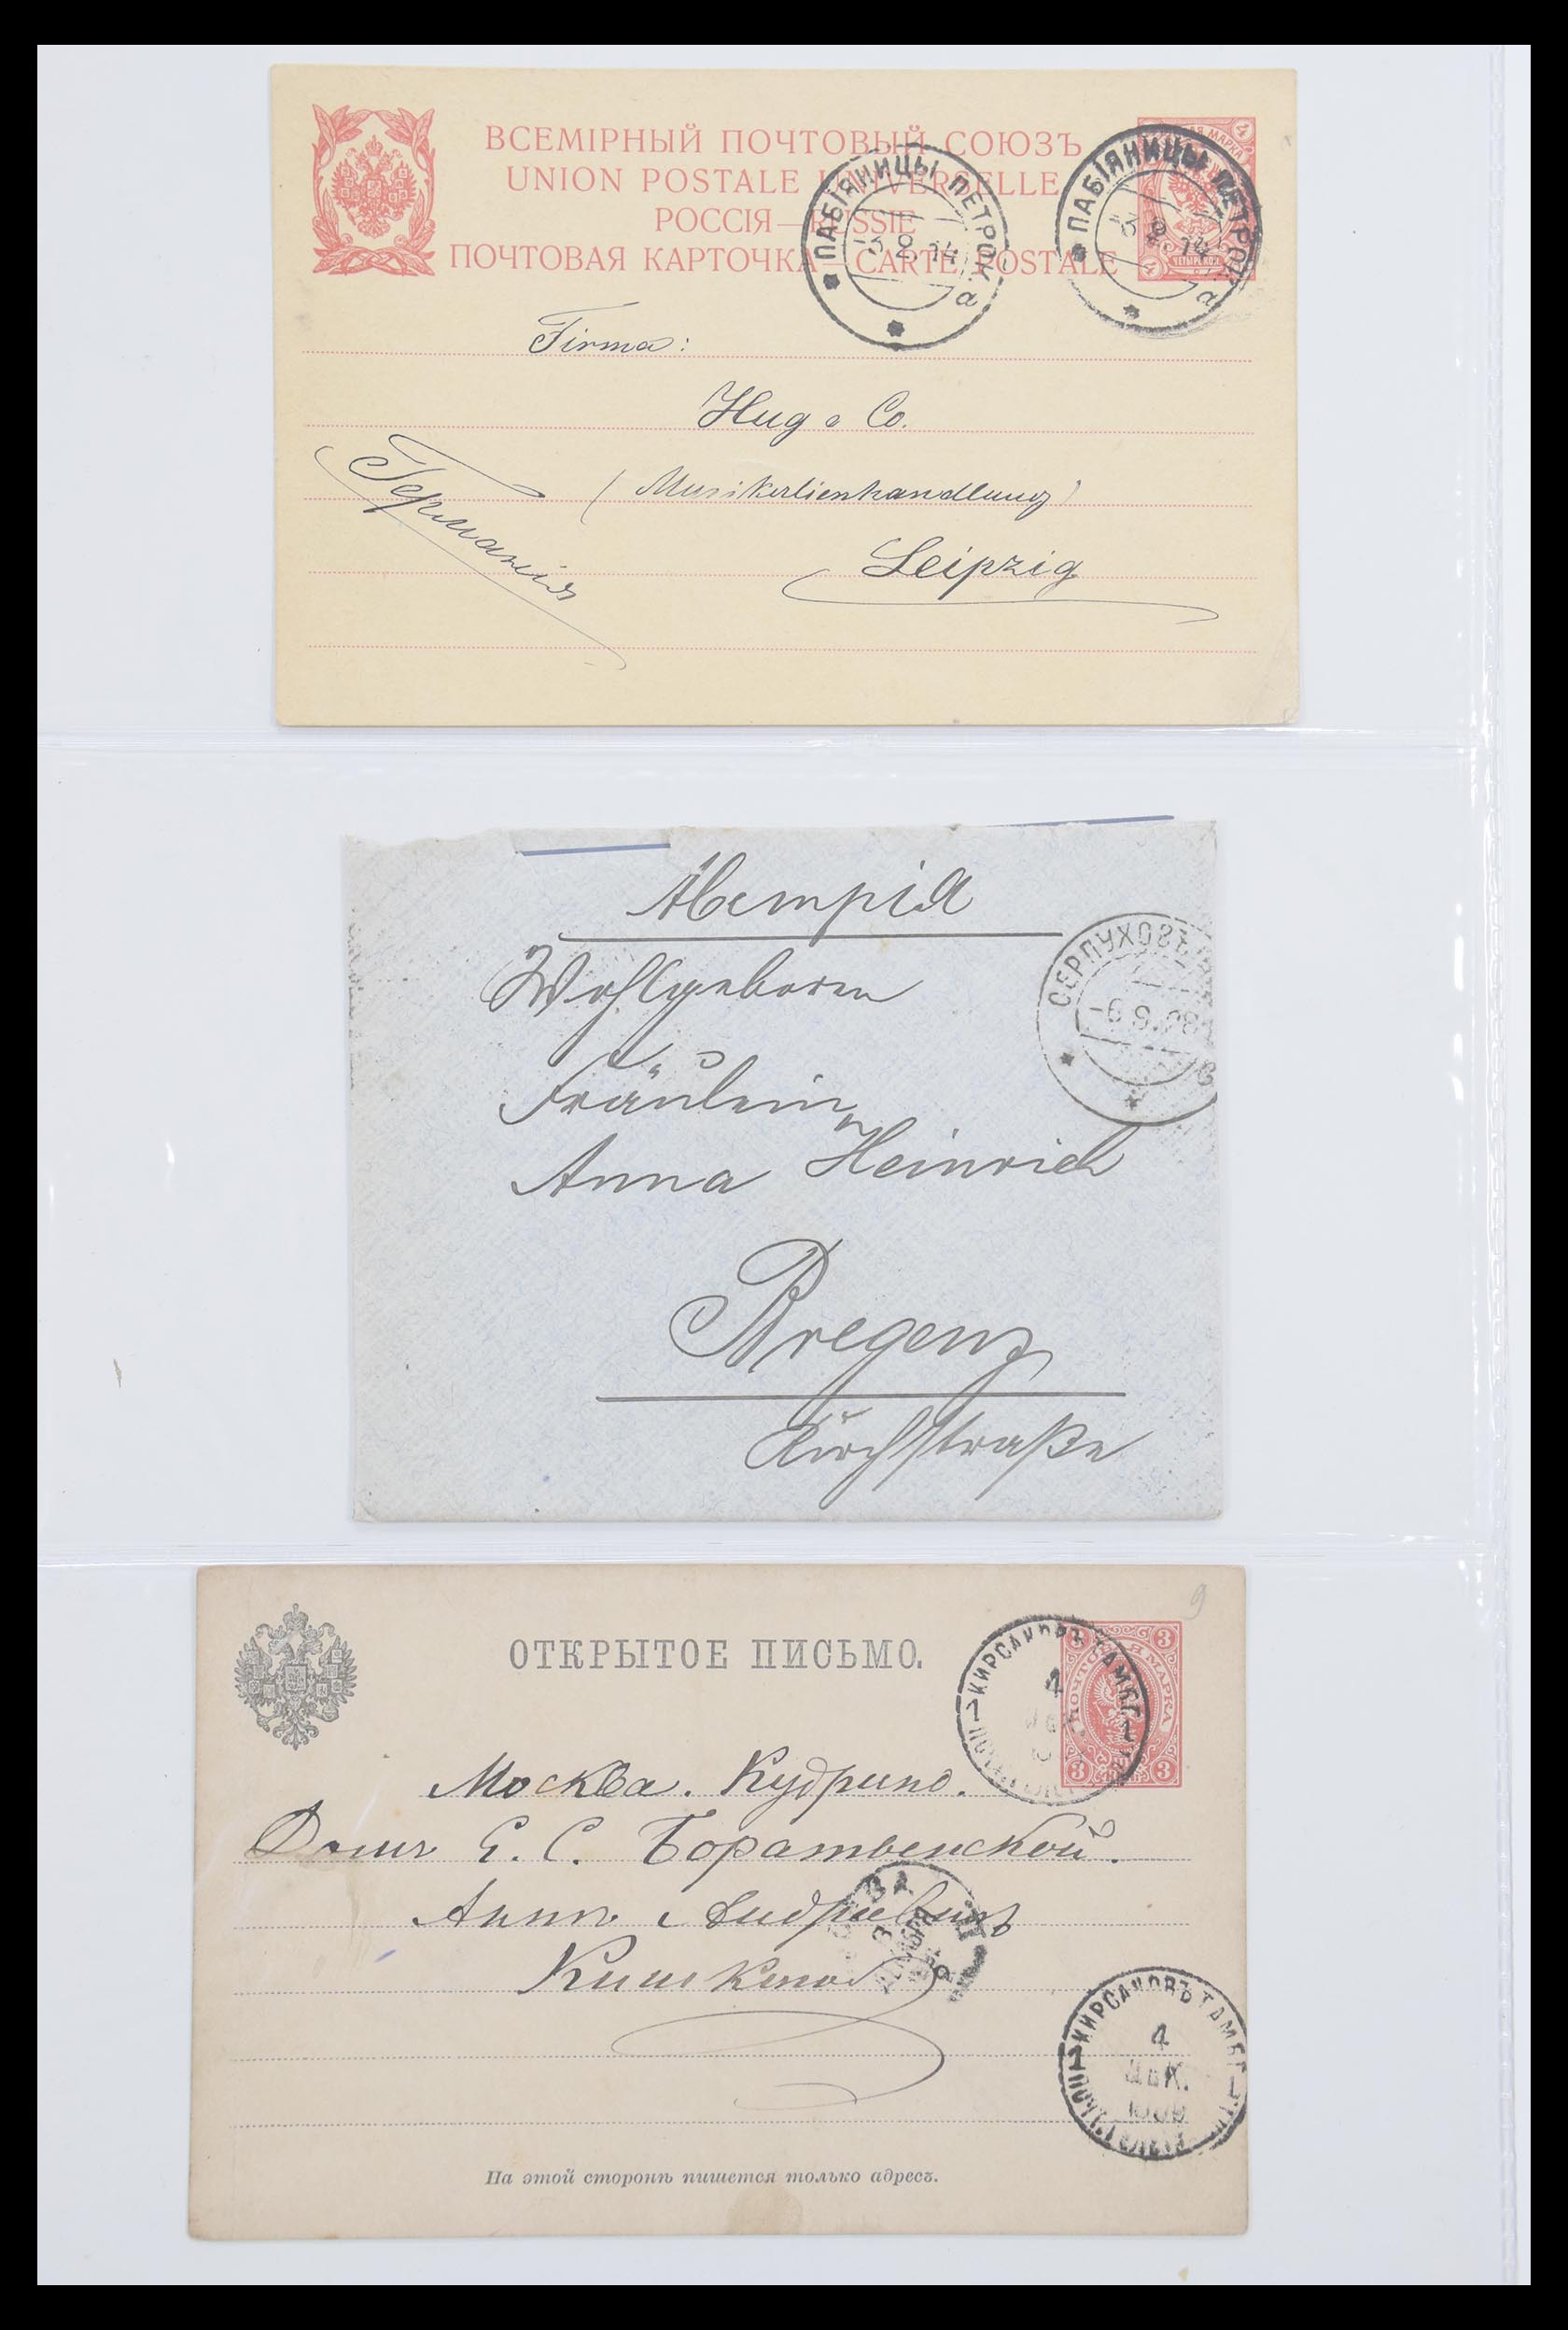 ВСЕМІРНЫЙ ПОЧТОВЫЙ СОЮЗЪ
UNION POSTALE UNIVERSELLE
РОССІЯ — RUSSIE
ПОЧТОВАЯ КАРТОЧКА — CARTE POSTALE
МАРКА
4
4
ЧЕТЫРЕ КОП.
ПАБІЯНИЦЫ ПЕТРОК.
-3 2 14
а
ПАБІЯНИЦЫ ПЕТРОК.
-3 2 14
а
Firma:
Hug & Co.
(Musikalienhandlung)
Leipzig
Германія
Австрія
СЕРПУХОВЪ
-6 8 08
Wohlgeboren
Fräulein
Anna Heinrich
Bregenz
Kirchstraße
9
ОТКРЫТОЕ ПИСЬМО.
3 3
ПОЧТОВАЯ МАРКА
3 3
КИРСАНОВЪ ТАМБ. Г.
4
1
Москва. Кудрино.
Домъ Е. С. Боратынской.
Аннѣ Андреевнѣ
КИРСАНОВЪ ТАМБ. Г.
4
ДЕК.
1
На этой сторонѣ пишется только адресъ.